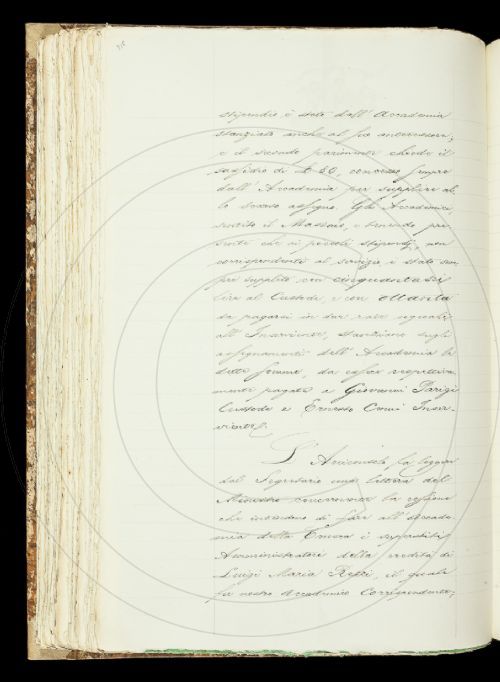 stipendio è stato dall' Accademia
stanziato anche al suo antecessore,
e il secondo parimenti chiede il
sussidio di £ 56, concesso sempre
dall' Accademia per supplire al
lo scarso assegno. Gli Accademici
sentito il Massaro, e tenendo pre
sente che ai piccoli stipendj, non
corrispondenti al servizio è stato sem
pre supplito, con cinquantasei
lire al Custode, e con ottanta
da pagarsi in due rate uguali
all' Inserviente, stanziano sugli
assegnamenti dell' Accademia le
dette somme, da esser respettiva
mente pagate a Giovanni Parigi
Custode e Ernesto Inser
viente.
L' Arciconsolo fa leggere
dal Segretario una lettera del
Ministro concernente la cessione
che intendono di fare all' Accade
mia della Crusca i
Amministratori della eredità di
Luigi Maria Rezzi, il quale
fu nostro Accademico Corrispondente,